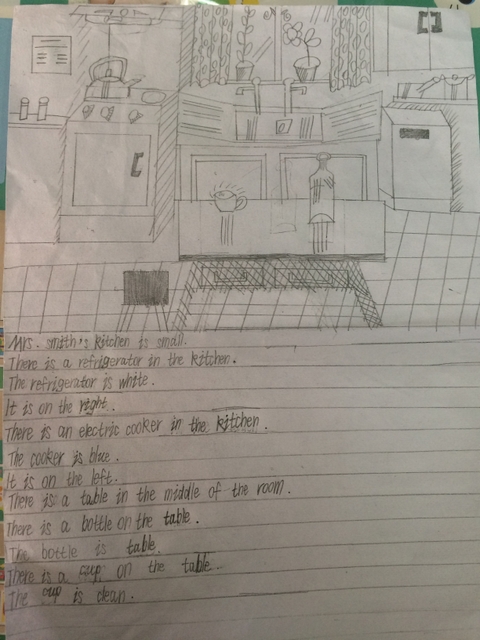 Mrs. smith's kitchen is small.
There is a refrigerator in the kitchen.
The refrigerator is white.
It is on the right.
There is an electric cooker in the kitchen.
The cooker is blue.
It is on the left.
There is a table in the middle of the room.
There is a bottle on the table.
The bottle is table.
There is a cup on the table.
The cup is clean.